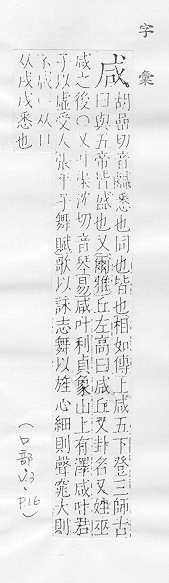 字彙
咸 胡嵒切音醎悉也同也皆也相如傳上咸五下登三師古
曰與五帝皆盛也又爾雅丘左高曰咸丘又卦名又姓巫
咸之後○又叶切音琴易咸叶利貞象山上有澤咸叶君
子以虛受人張平子舞賦歌以詠志舞以旌心細則聲窕大則
从口
从戌戌悉也
(口部·3·P.16)